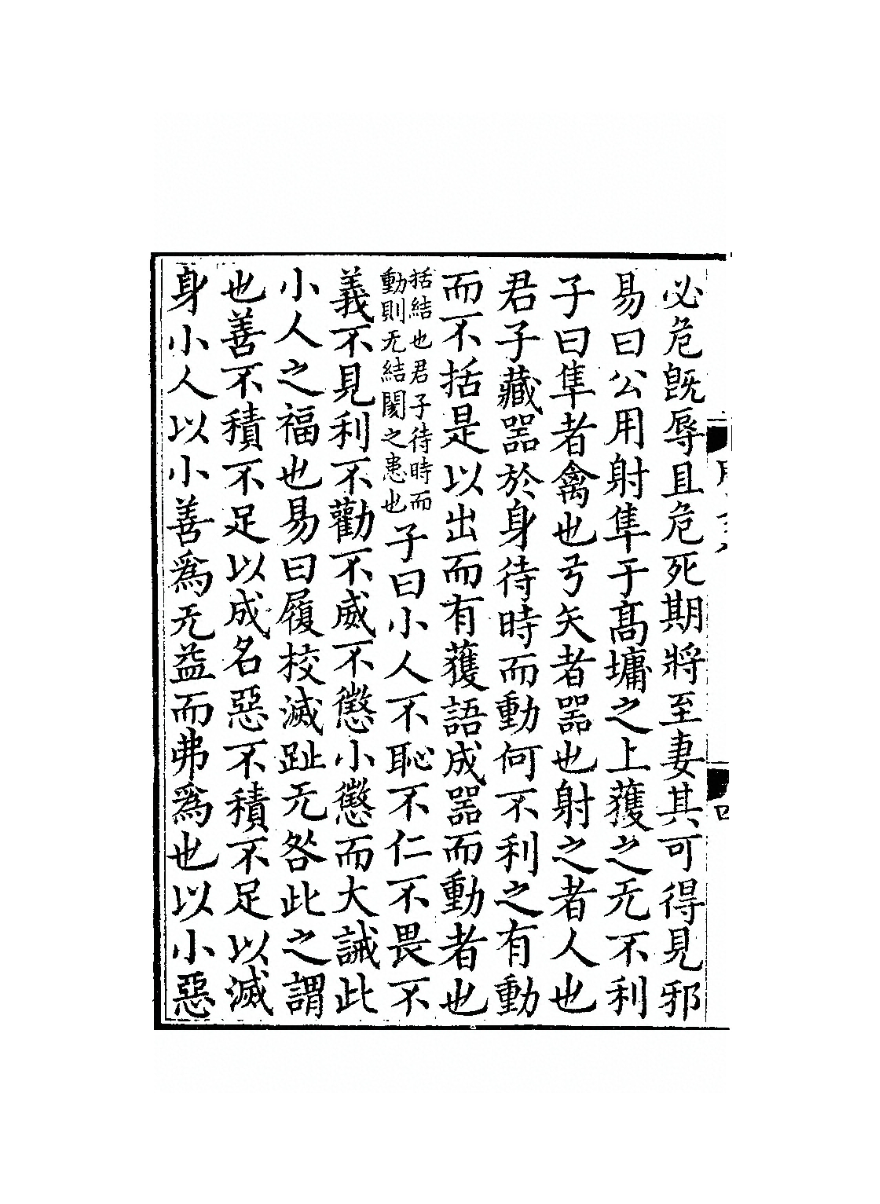 必危既辱且危死期將至妻其可得見邪
易曰公用射隼于髙墉之上獲之无不利
子曰隼者禽也弓矢者噐也射之者人也
君子藏噐於身待時而動何不利之有動
而不括是以出而有獲語成噐而動者也
括結也君子待時而
動則无結閡之患也
子曰小人不恥不仁不畏不
義不見利不勸不威不懲小懲而大誡此
小人之福也易曰履校滅趾无咎此之謂
也善不積不足以成名惡不積不足以滅
身小人以小善爲无益而弗爲也以小惡